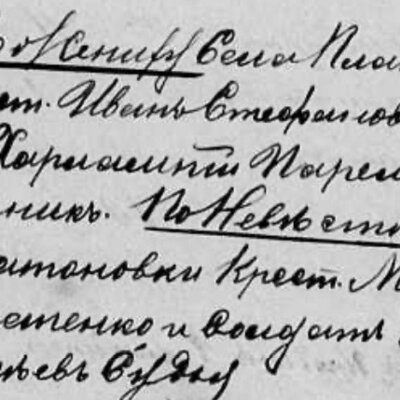 Женику Села Пла
ст. Иванъ Стефанов
Харлампiй Парем
никъ. По Невѣсте
атоновки Крест. М
стенко и Солдатъ
ѣевъ Судья